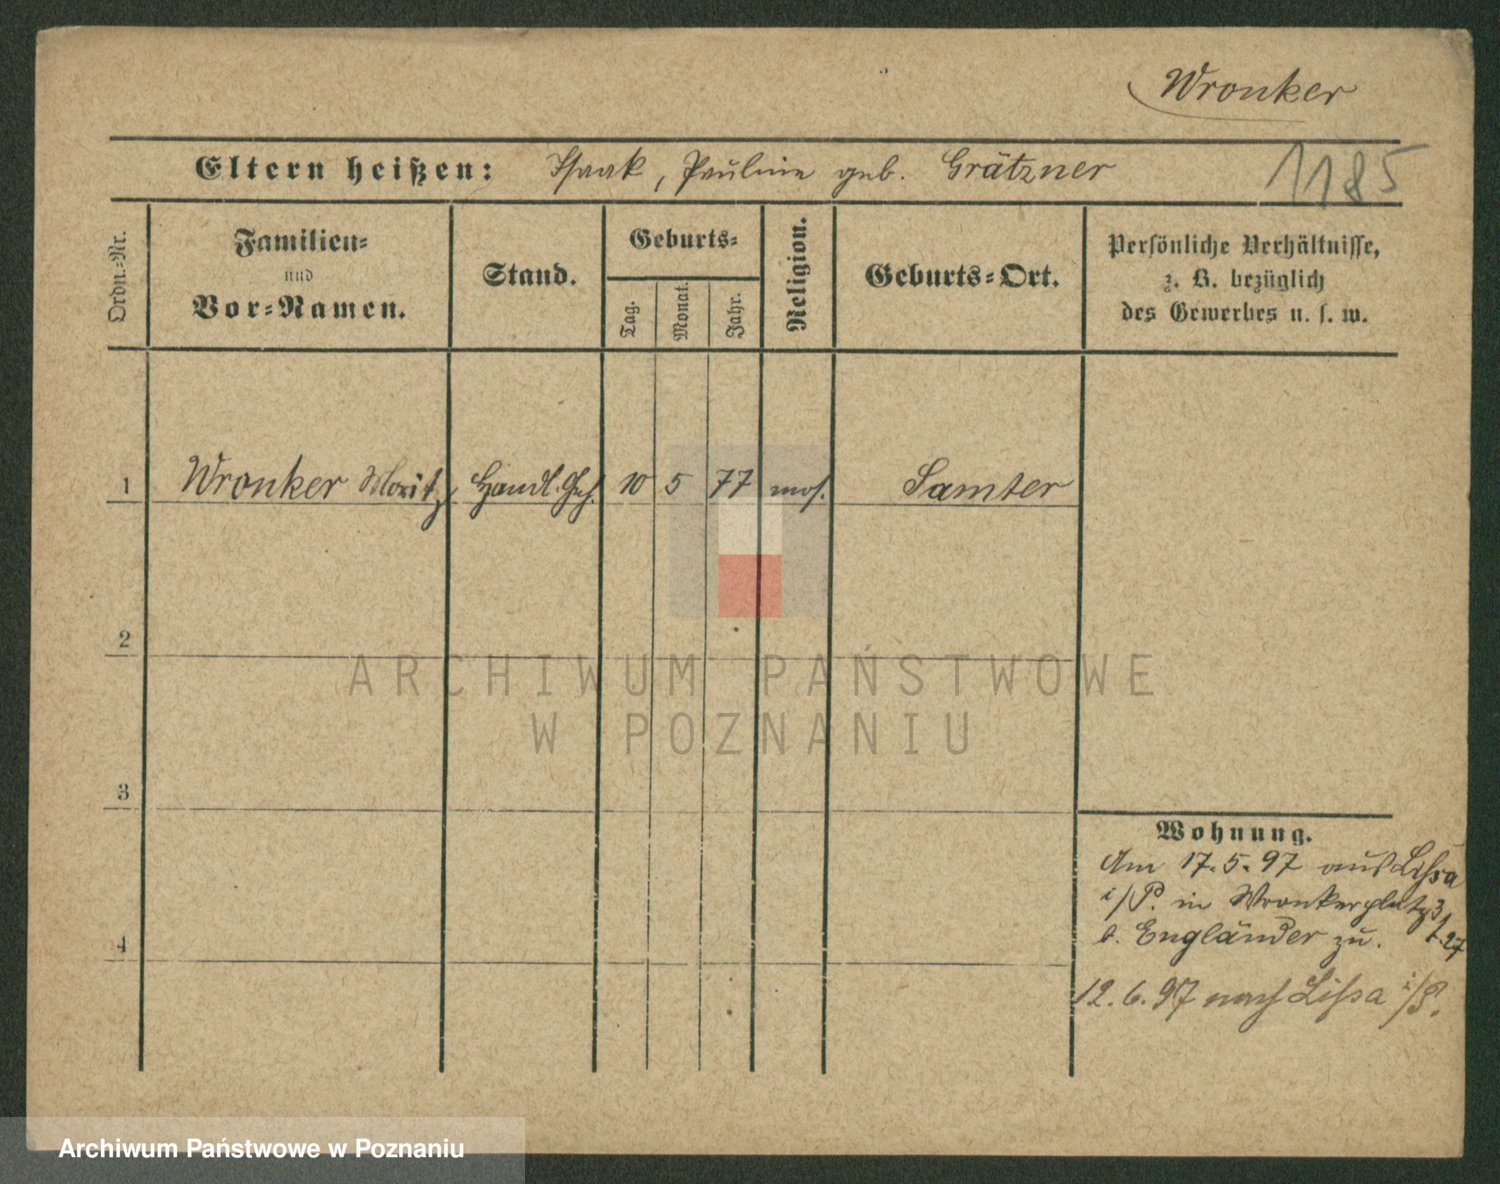 Wronker
Eltern heißen: Isaak, Pauline geb. Grätzner
1185
Ordn.-Nr.
Familien-
und
Vor-Namen.
Stand.
Geburts-
Tag.
Monat.
Jahr.
Religion.
Geburts-Ort.
Persönliche Verhältnisse,
z. B. bezüglich
des Gewerbes u. s. w.
1 Wronker Moritz Handl. Geh. 10 5 77 mos. Samter
2
3
4
ARCHIWUM PAŃSTWOWE
W POZNANIU
Wohnung.
Am 17.5.97 aus Lissa
i/P. in Wronkerplatz 3
b. Engländer zu.
12.6.97 nach Lissa i/P.
Archiwum Państwowe w Poznaniu